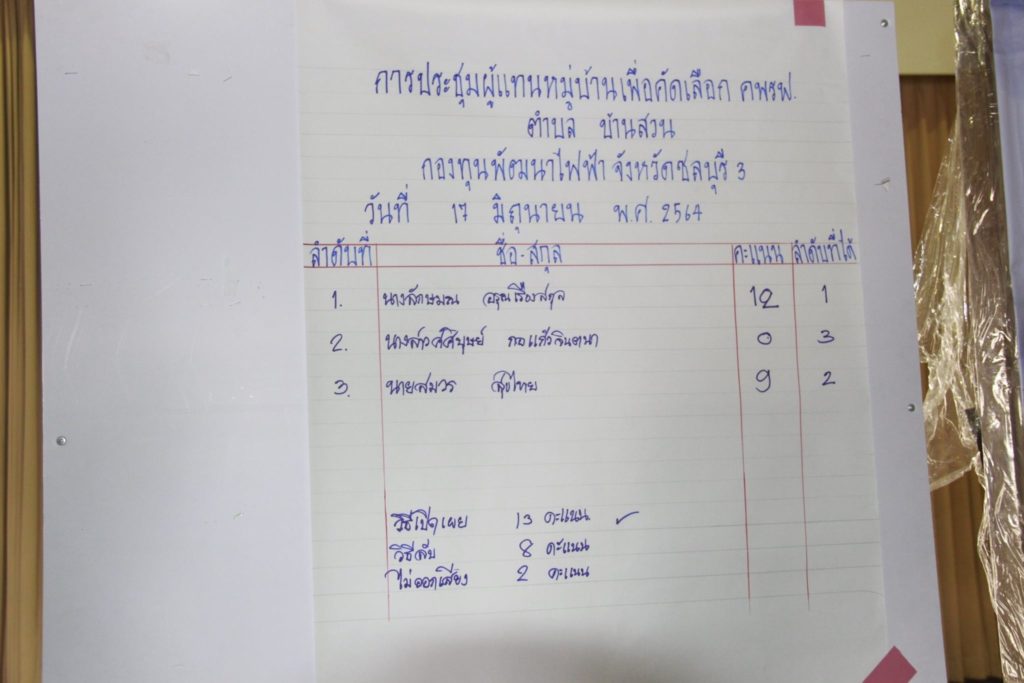 การประชุมผู้แทนหมู่บ้านเพื่อคัดเลือก คพรฟ.
ตำบล บ้านสวน
กองทุนพัฒนาไฟฟ้า จังหวัดชลบุรี 3
วันที่ 17 มิถุนายน พ.ศ. 2564
ลำดับที่ ชื่อ-สกุล คะแนน ลำดับที่ได้
1. นางลักษมณ อรุณเรืองสกุล 12 1
2. นางสาวศศิบุษย์ 0 3
3. นายสมวร สุขไทย 9 2
วิธีเปิดเผย 13 คะแนน ✓
วิธีลับ 8 คะแนน
ไม่ออกเสียง 2 คะแนน